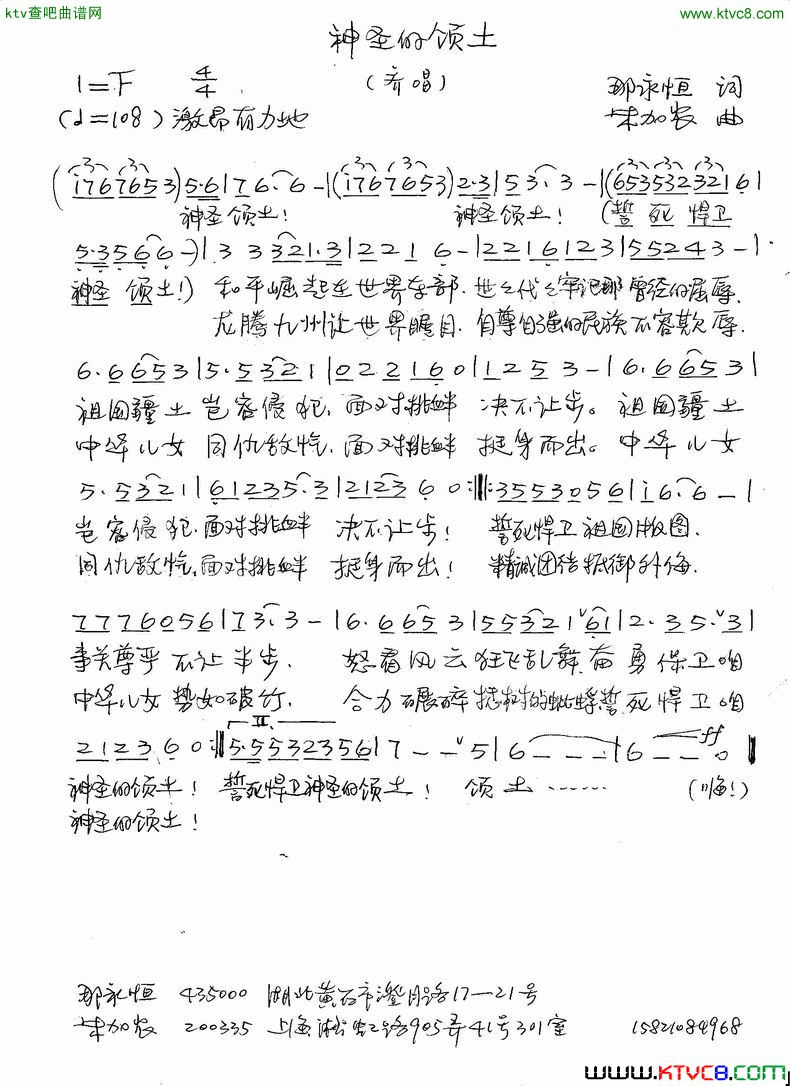 ktv查吧曲谱网 www.ktvc8.com
神圣的领土
1=F 4/4 (齐唱) 邵永恒 词
(♩=108) 激昂有力地 朱加农 曲
神圣领土! 神圣领土! (誓死捍卫
神圣领土!) 和平崛起在世界东部. 世世代代牢记那曾经的屈辱.
龙腾九州让世界瞩目. 自尊自强的民族不容欺辱.
6. 6 6 5 3 | 5. 5 3 2 1 | 0 2 2 1 6 0 | 1 2 5 3 - | 6. 6 6 5 3 |
祖国疆土岂容侵犯, 面对挑衅 决不让步。 祖国疆土
中华儿女同仇敌忾, 面对挑衅 挺身而出。 中华儿女
岂容侵犯, 面对挑衅 决不让步! 誓死捍卫祖国版图.
同仇敌忾, 面对挑衅 挺身而出! 精诚团结抵御外侮.
7 7 7 6 0 5 6 | 7 3. 3 - | 6. 6 6 5 3 | 5 5 3 2 1 6 1 | 2. 3 5. 3 |
事关尊严不让半步. 怒看风云狂飞乱舞 奋勇保卫咱
中华儿女势如破竹. 合力碾碎撼树的蚍蜉 誓死捍卫咱
2 1 2 3 6 0 :‖ II. 5. 5 5 3 2 3 5 6 | 7 - - 5 | 6 - - - | 6 - - 0 ‖ ff
神圣的领土! 誓死捍卫神圣的领土! 领土…… (嗨!)
神圣的领土!
邵永恒 435000 湖北黄石市澄月路17—21号
朱加农 200335 上海淞虹路905弄41号301室 15821084968
www.KTVC8.com